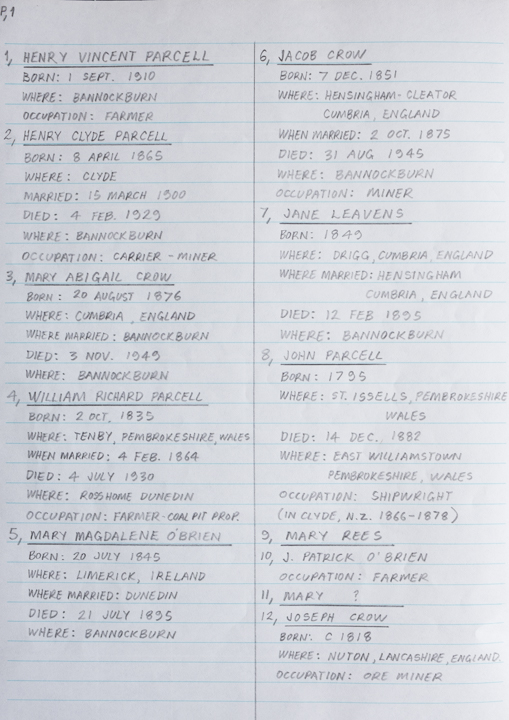 P,1
1, HENRY VINCENT PARCELL
BORN: 1 SEPT. 1910
WHERE: BANNOCKBURN
OCCUPATION: FARMER
2, HENRY CLYDE PARCELL
BORN: 8 APRIL 1865
WHERE: CLYDE
MARRIED: 15 MARCH 1900
DIED: 4 FEB. 1929
WHERE: BANNOCKBURN
OCCUPATION: CARRIER - MINER
3, MARY ABIGAIL CROW
BORN: 20 AUGUST 1876
WHERE: CUMBRIA, ENGLAND
WHERE MARRIED: BANNOCKBURN
DIED: 3 NOV. 1949
WHERE: BANNOCKBURN
4, WILLIAM RICHARD PARCELL
BORN: 2 OCT, 1835
WHERE: TENBY, PEMBROKESHIRE, WALES
WHEN MARRIED: 4 FEB. 1864
DIED: 4 JULY 1930
WHERE: ROSSHOME DUNEDIN
OCCUPATION: FARMER-COALPIT PROP.
5, MARY MAGDALENE O'BRIEN
BORN: 20 JULY 1845
WHERE: LIMERICK, IRELAND
WHERE MARRIED: DUNEDIN
DIED: 21 JULY 1895
WHERE: BANNOCKBURN
6, JACOB CROW
BORN: 7 DEC. 1851
WHERE: HENSINGHAM-CLEATOR
CUMBRIA, ENGLAND
WHEN MARRIED: 2 OCT. 1875
DIED: 31 AUG 1945
WHERE: BANNOCKBURN
OCCUPATION: MINER
7, JANE LEAVENS
BORN: 1849
WHERE: DRIGG, CUMBRIA, ENGLAND
WHERE MARRIED: HENSINGHAM
CUMBRIA, ENGLAND
DIED: 12 FEB 1895
WHERE: BANNOCKBURN
8, JOHN PARCELL
BORN: 1795
WHERE: ST. ISSELLS, PEMBROKESHIRE
WALES
DIED: 14 DEC. 1882
WHERE: EAST WILLIAMSTOWN
PEMBROKESHIRE, WALES
OCCUPATION: SHIPWRIGHT
(IN CLYDE, N.Z. 1866-1878)
9, MARY REES
10, J. PATRICK O'BRIEN
OCCUPATION: FARMER
11, MARY ?
12, JOSEPH CROW
BORN: C 1818
WHERE: NUTON, LANCASHIRE, ENGLAND.
OCCUPATION: ORE MINER